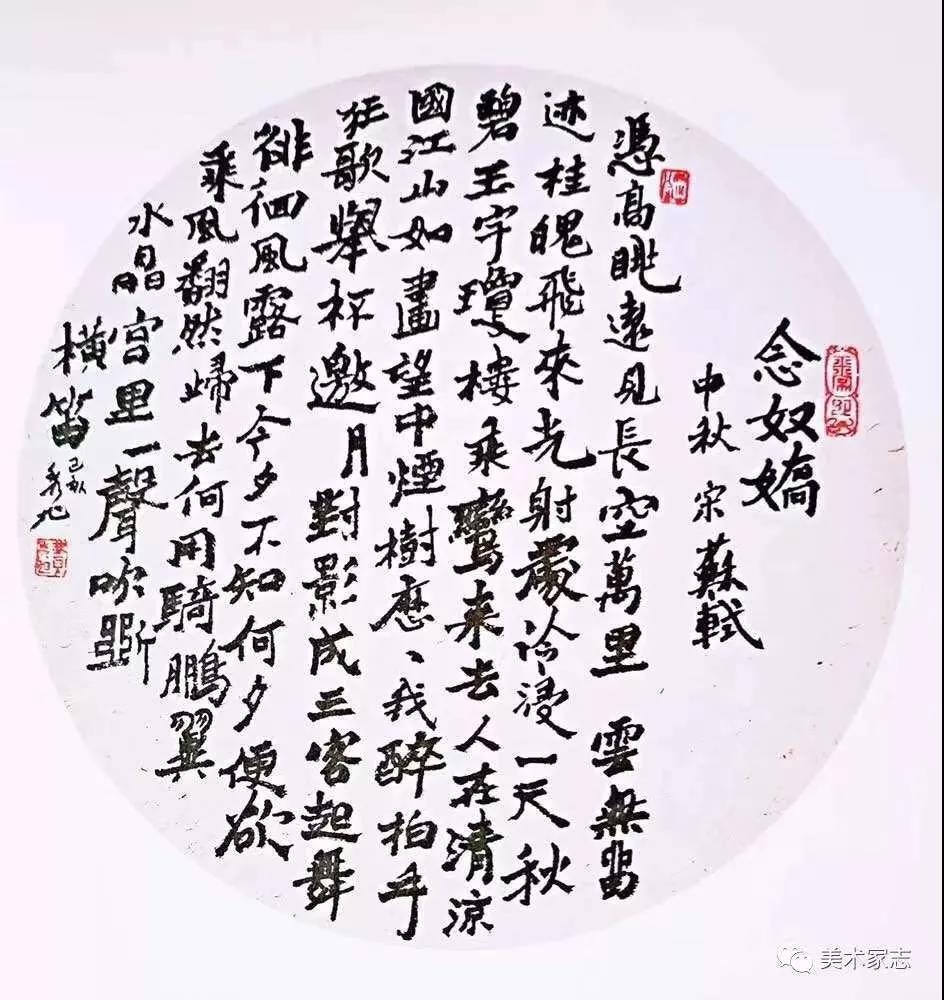 念奴嬌
中秋 宋 蘇軾
憑高眺遠見長空萬里 雲無留
迹桂魄飛來光射處冷浸一天秋
碧玉宇瓊樓乘鸞来去人在清凉
國江山如畫望中煙樹歷、我醉拍手
狂歌舉杯邀月對影成三客起舞
徘徊風露下今夕不知何夕便欲
乘風翻然歸去何用騎鵬翼
水晶宫里一聲吹斷
橫笛
美术家志